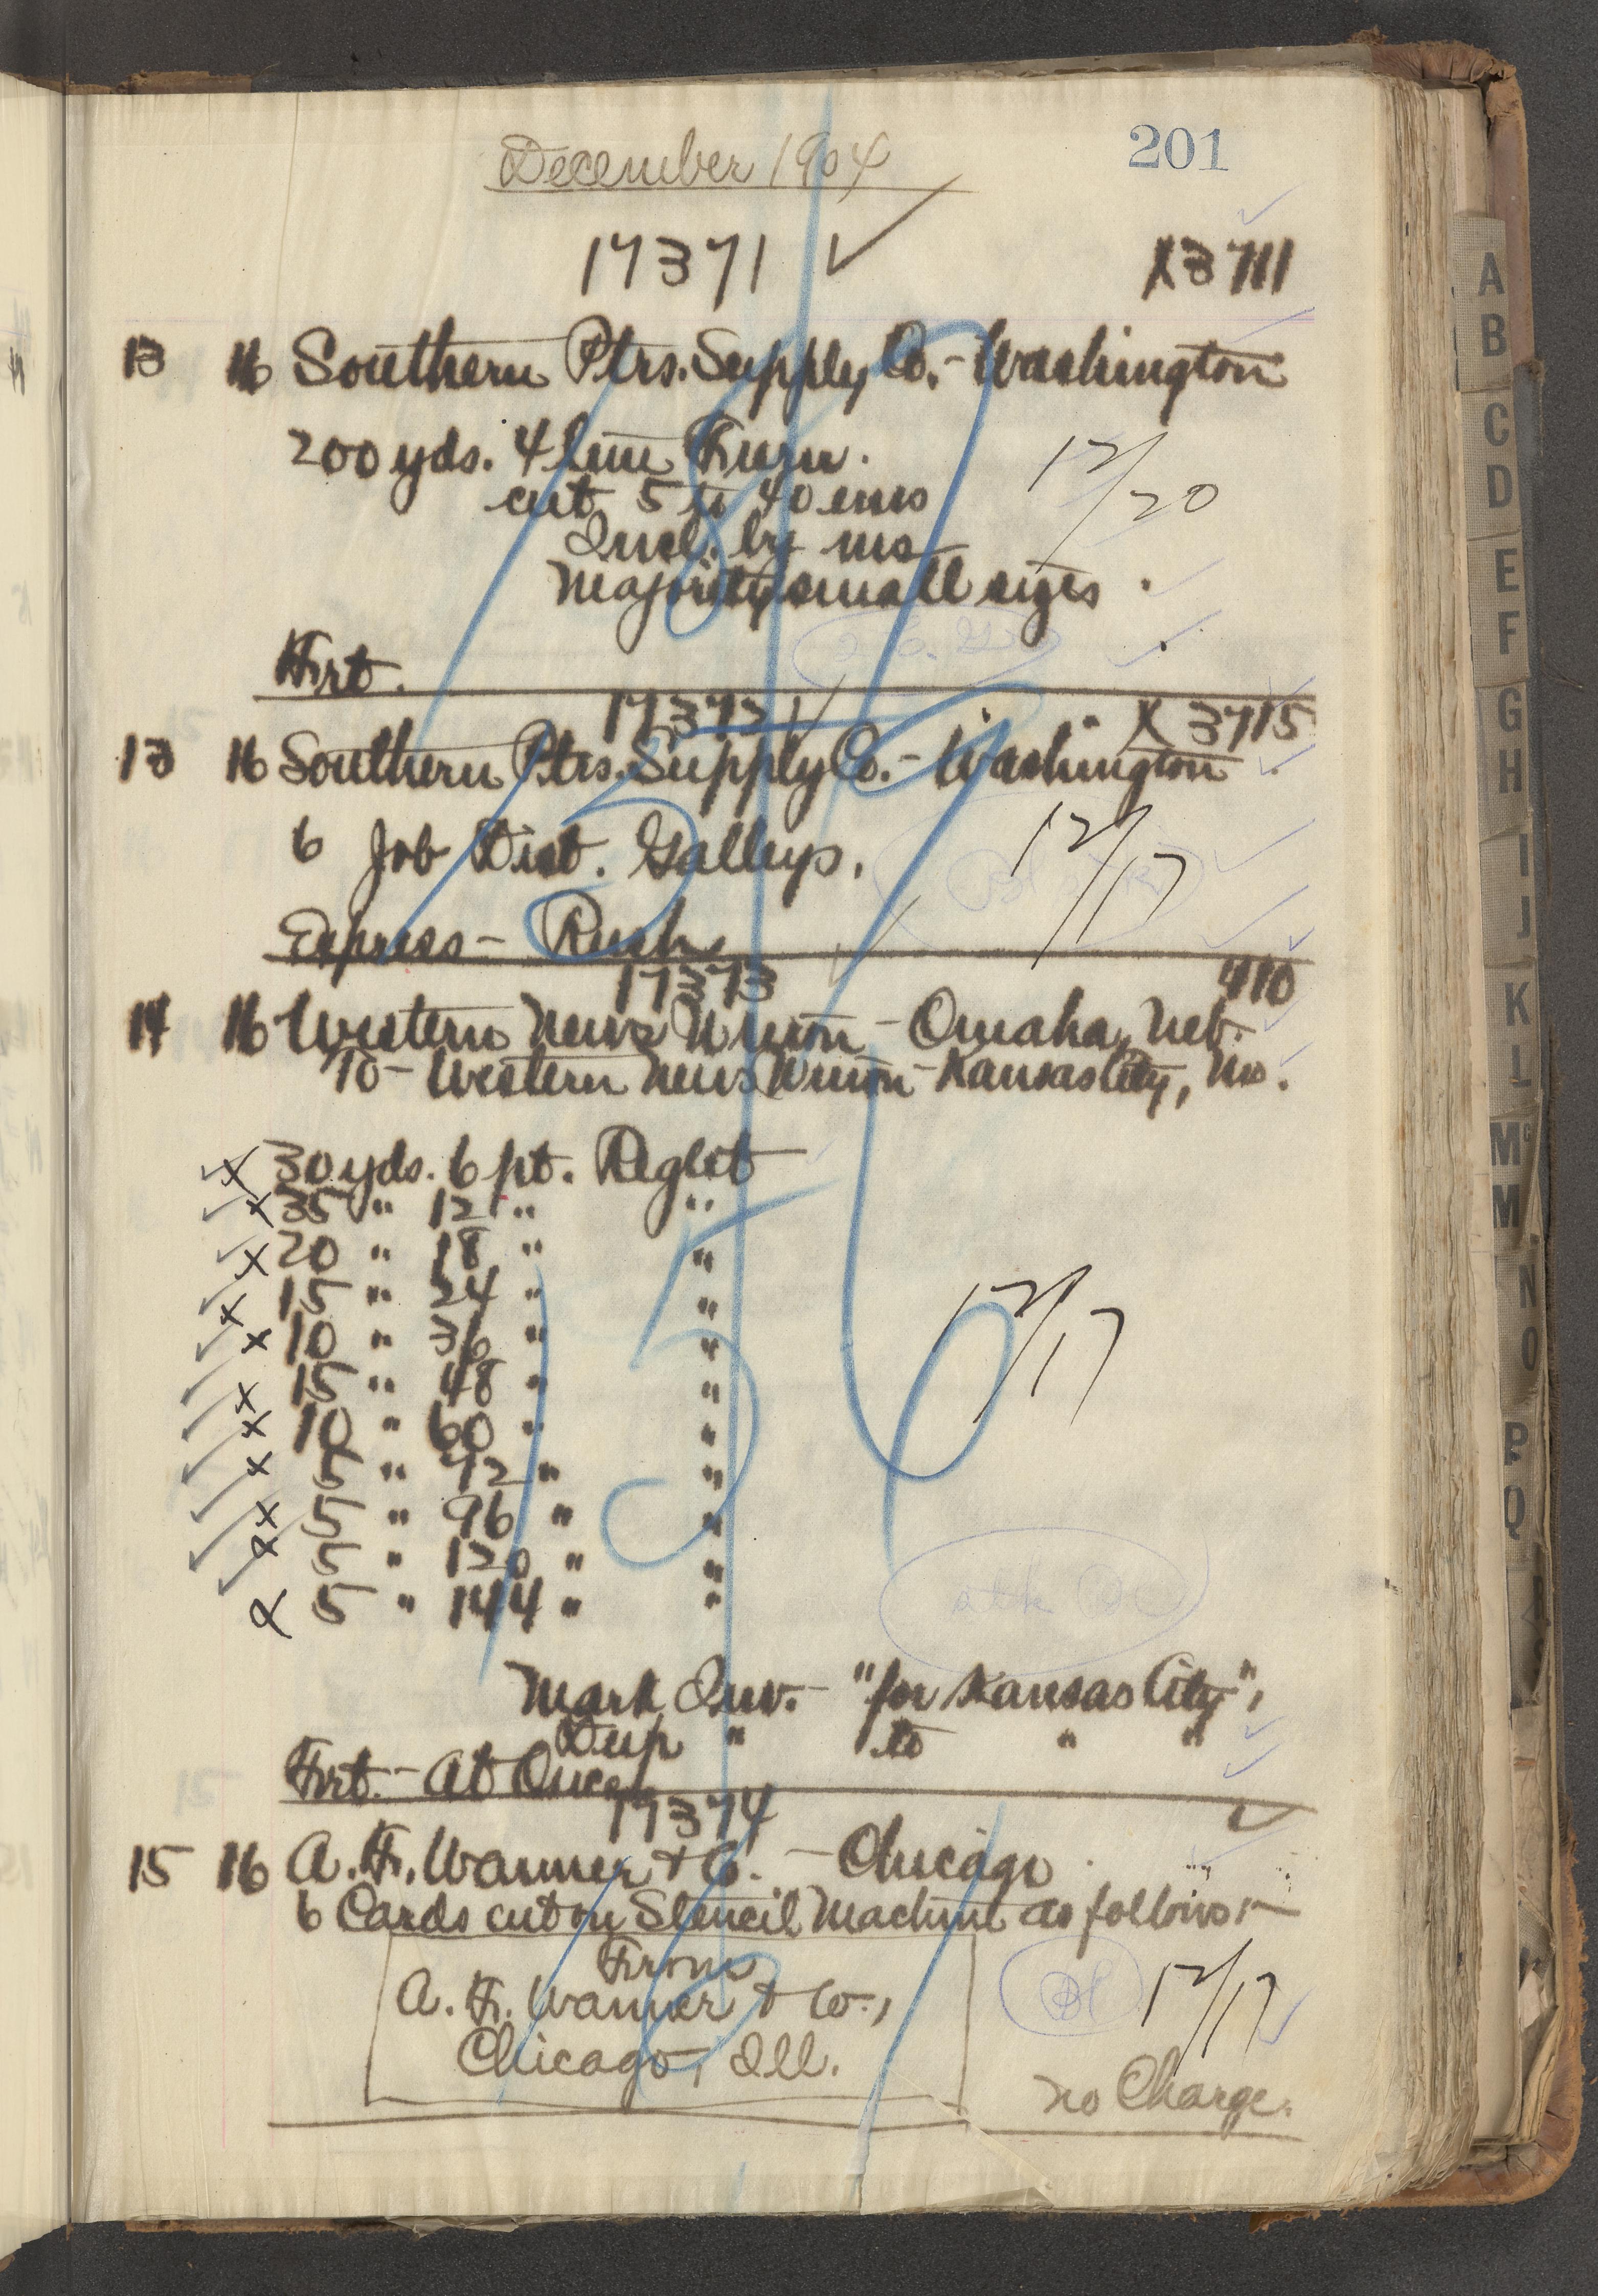 201
December 1904
17371 ✓
X3711
13 16 Southern Ptrs. Supply Co. - Washington
200 yds. 4 line Furn.
12/20
cut 5 to 40 ems
Incl. by ms
Majority small sizes
Frt.
17372 ✓ X3715
13 16 Southern Ptrs. Supply Co. - Washington
6 Job Dist. Galleys.
12/17
Express - Rush
17373 410
14 16 Western News Union - Omaha, Neb.
To - Western News Union - Kansas City, Mo.
✓ x 30 yds. 6 pt. Reglet
✓ x 35 " 12 " "
✓ x 20 " 18 " "
✓ x 15 " 24 " "
✓ x 10 " 36 " "
12/17
✓ x 15 " 48 " "
✓ x 10 " 60 " "
✓ x 5 " 72 " "
✓ x 5 " 96 " "
✓ x 5 " 120 " "
x 5 " 144 " "
Mark Inv. - "for Kansas City",
Dup " to " "
Frt. - At Once
17374
15 16 A. F. Wanner + Co. - Chicago
6 Cards cut on Stencil Machine as follows:-
From
A. F. Wanner + Co.,
12/17
Chicago, Ill.
No Charge.
A
B
C
D
E
F
G
H
I
J
K
L
Mc
M
N
O
P
Q